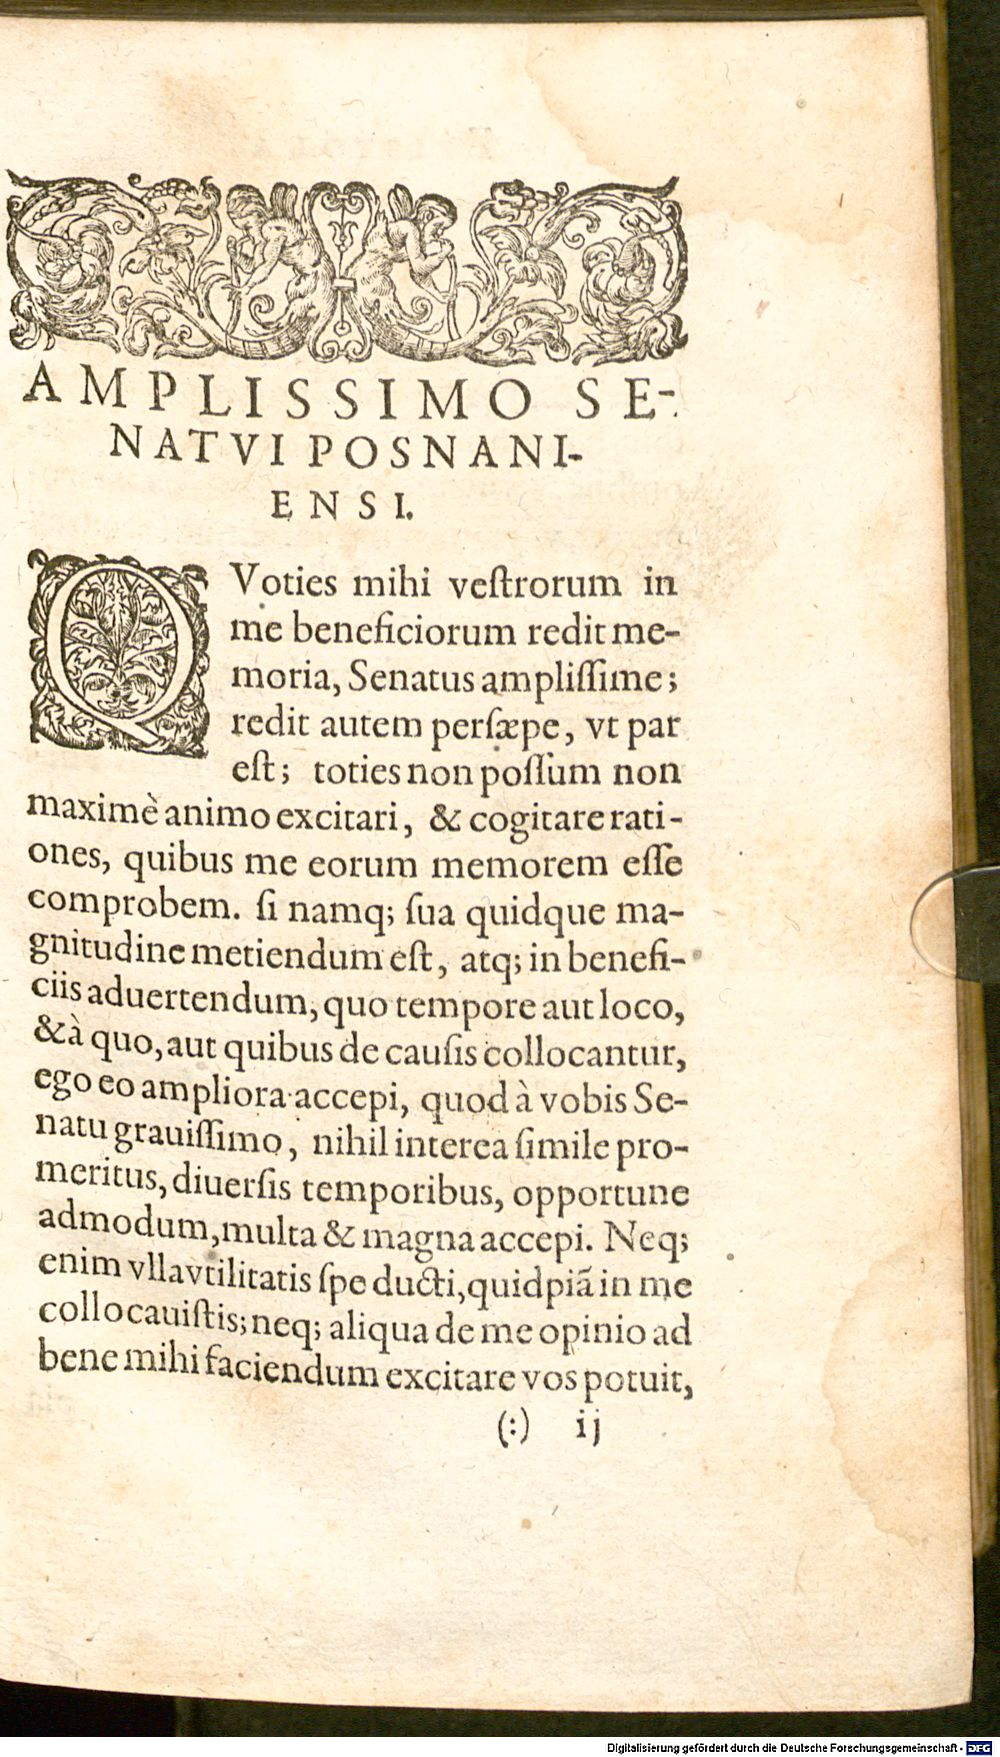 AMPLISSIMO SE-
NATVI POSNANI-
ENSI.
QVoties mihi veſtrorum in
me beneficiorum redit me-
moria, Senatus ampliſſime;
redit autem perſæpe, vt par
eſt; toties non poſſum non
maximè animo excitari, & cogitare rati-
ones, quibus me eorum memorem eſſe
comprobem. ſi namq; ſua quidque ma-
gnitudine metiendum eſt, atq; in benefi-
ciis aduertendum, quo tempore aut loco,
& à quo, aut quibus de cauſis collocantur,
ego eo ampliora accepi, quod à vobis Se-
natu grauiſſimo, nihil interea ſimile pro-
meritus, diuerſis temporibus, opportune
admodum, multa & magna accepi. Neq;
enim vlla vtilitatis ſpe ducti, quidpiã in me
collocauiſtis; neq; aliqua de me opinio ad
bene mihi faciendum excitare vos potuit,
(:) ij
Digitalisierung gefördert durch die Deutsche Forschungsgemeinschaft - DFG